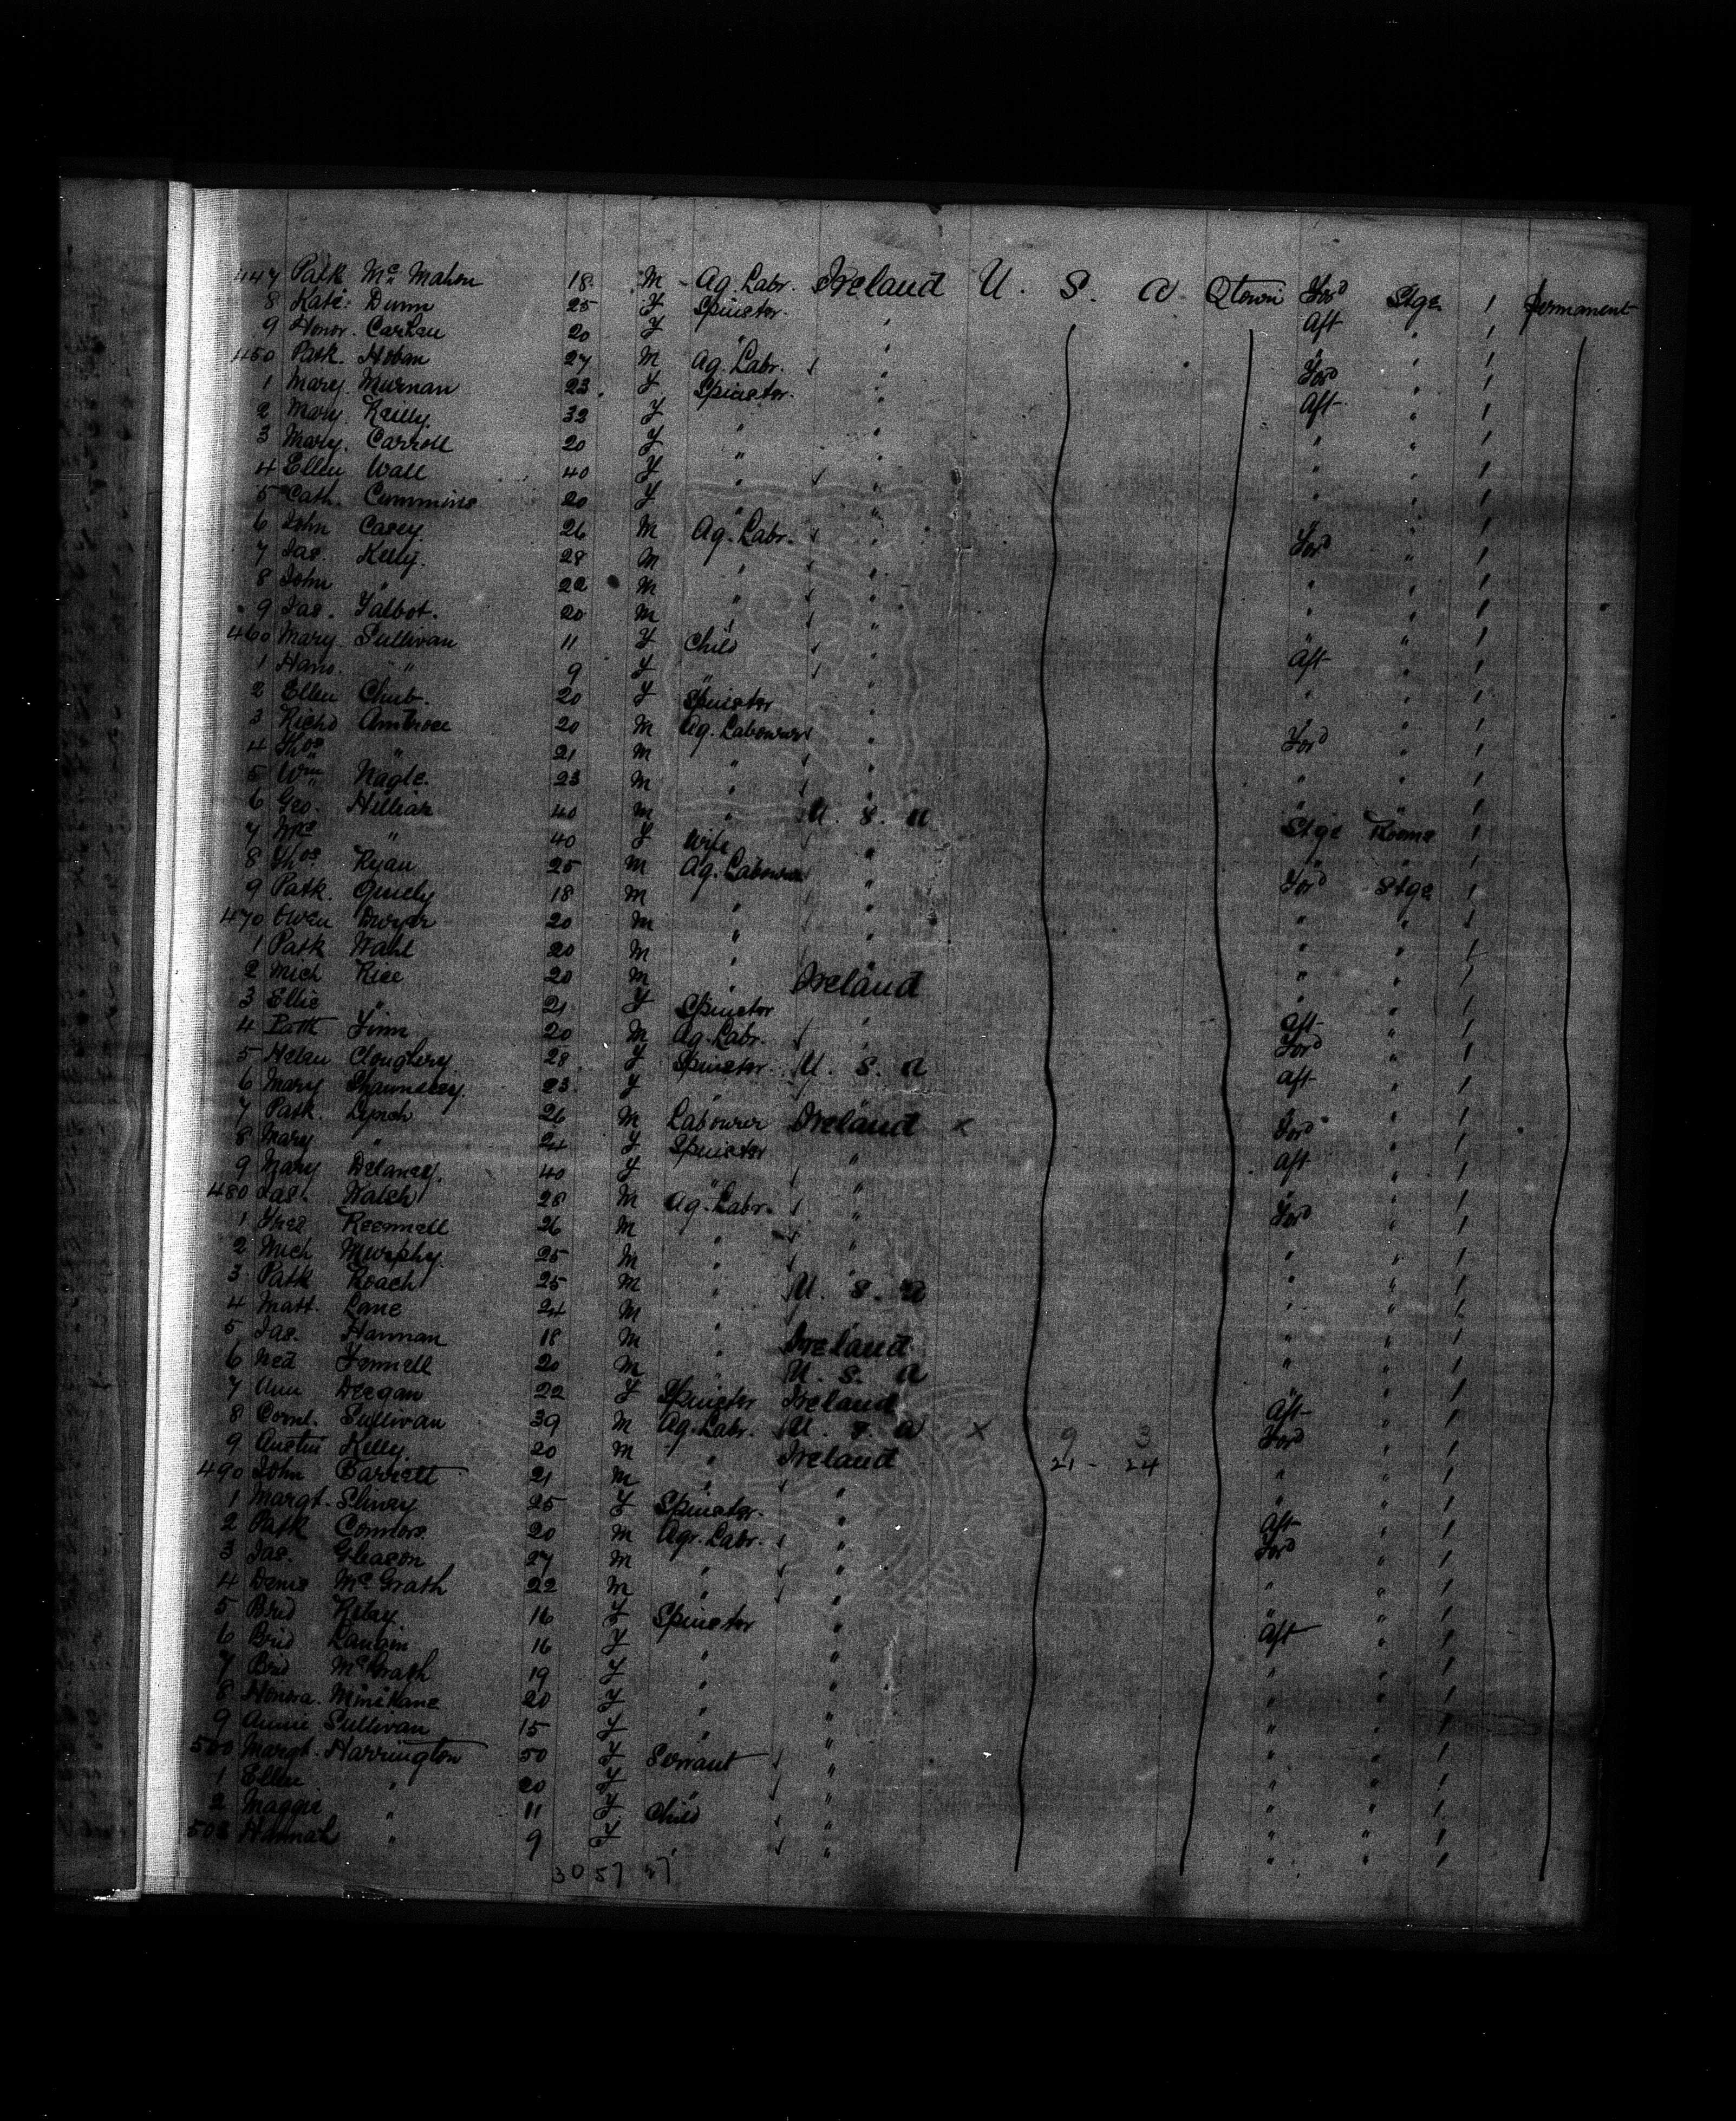 447 Patk Mc Mahon 18 M Ag. Labr. Ireland U. S. A Qtown For'd Stge 1 Permanent
8 Kate Dunn 25 F Spinster " Aft " 1
9 Honor. 20 F " " " " 1
450 Patk. Hoban 27 M Ag. Labr. " For'd " 1
1 Mary Murnan 23 F Spinster " Aft " 1
2 Mary Reilly 32 F " " " " 1
3 Mary Carroll 20 F " " " " 1
4 Ellen Wall 40 F " " " " 1
5 Cath. Cummins 20 F " " " " 1
6 John Casey 26 M Ag. Labr. " For'd " 1
7 Jas. Kelly 28 M " " " " 1
8 John " 22 M " " " " 1
9 Jas. Talbot 20 M " " " " 1
460 Mary Sullivan 11 F Child " Aft " 1
1 Hano. " 9 F " " " " 1
2 Ellen Chub 20 F Spinster " " " 1
3 Richd Ambrose 20 M Ag. Labourer " For'd " 1
4 Thos " 21 M " " " " 1
5 Wm Nagle 23 M " " " " 1
6 Geo. Hilliar 40 M " U. S. A Stge Rooms 1
7 Mrs " 40 F Wife " " " 1
8 Thos Ryan 25 M Ag. Labourer " For'd Stge 1
9 Patk. 18 M " " " " 1
470 Owen Dwyer 20 M " " " " 1
1 Patk Wahl 20 M " " " " 1
2 Mich Rice 20 M " Ireland " " 1
3 Ellie " 21 F Spinster " Aft " 1
4 Patk Finn 20 M Ag. Labr. " For'd " 1
5 Helen Cloughery 28 F Spinster U. S. A Aft " 1
6 Mary Shaunessy 23 F " " " " 1
7 Patk. Lynch 26 M Labourer Ireland x For'd " 1
8 Mary " 24 F Spinster " Aft " 1
9 Mary Delaney 40 F " " " " 1
480 Jas. Walsh 28 M Ag. Labr. " For'd " 1
1 Fred 26 M " " " " 1
2 Mich Murphy 25 M " " " " 1
3 Patk Roach 25 M " U. S. A " " 1
4 Matt. Lane 24 M " " " " 1
5 Jas. Hannan 18 M " Ireland " " 1
6 Ned Fennell 20 M " U. S. A " " 1
7 Ann Deegan 22 F Spinster Ireland Aft " 1
8 Cornl. Sullivan 39 M Ag. Labr. U. S. A x 9 3 For'd " 1
9 Austin Kelly 20 M " Ireland 21 - 24 " " 1
490 John Barrett 21 M " " " " 1
1 Margt. 25 F Spinster " Aft " 1
2 Patk Connors 20 M Agr. Labr. " For'd " 1
3 Jas. Gleason 27 M " " " " 1
4 Denis McGrath 22 M " " " " 1
5 Brid 16 F Spinster " Aft " 1
6 Brid 16 F " " " " 1
7 Brid McGrath 19 F " " " " 1
8 Honora. Minihane 20 F " " " " 1
9 Annie Sullivan 15 F " " " " 1
500 Margt. Harrington 50 F Servant " " " 1
1 Ellen " 20 F " " " " 1
2 Maggie " 11 F Child " " " 1
503 Hannah " 9 F " " " " 1
30 57